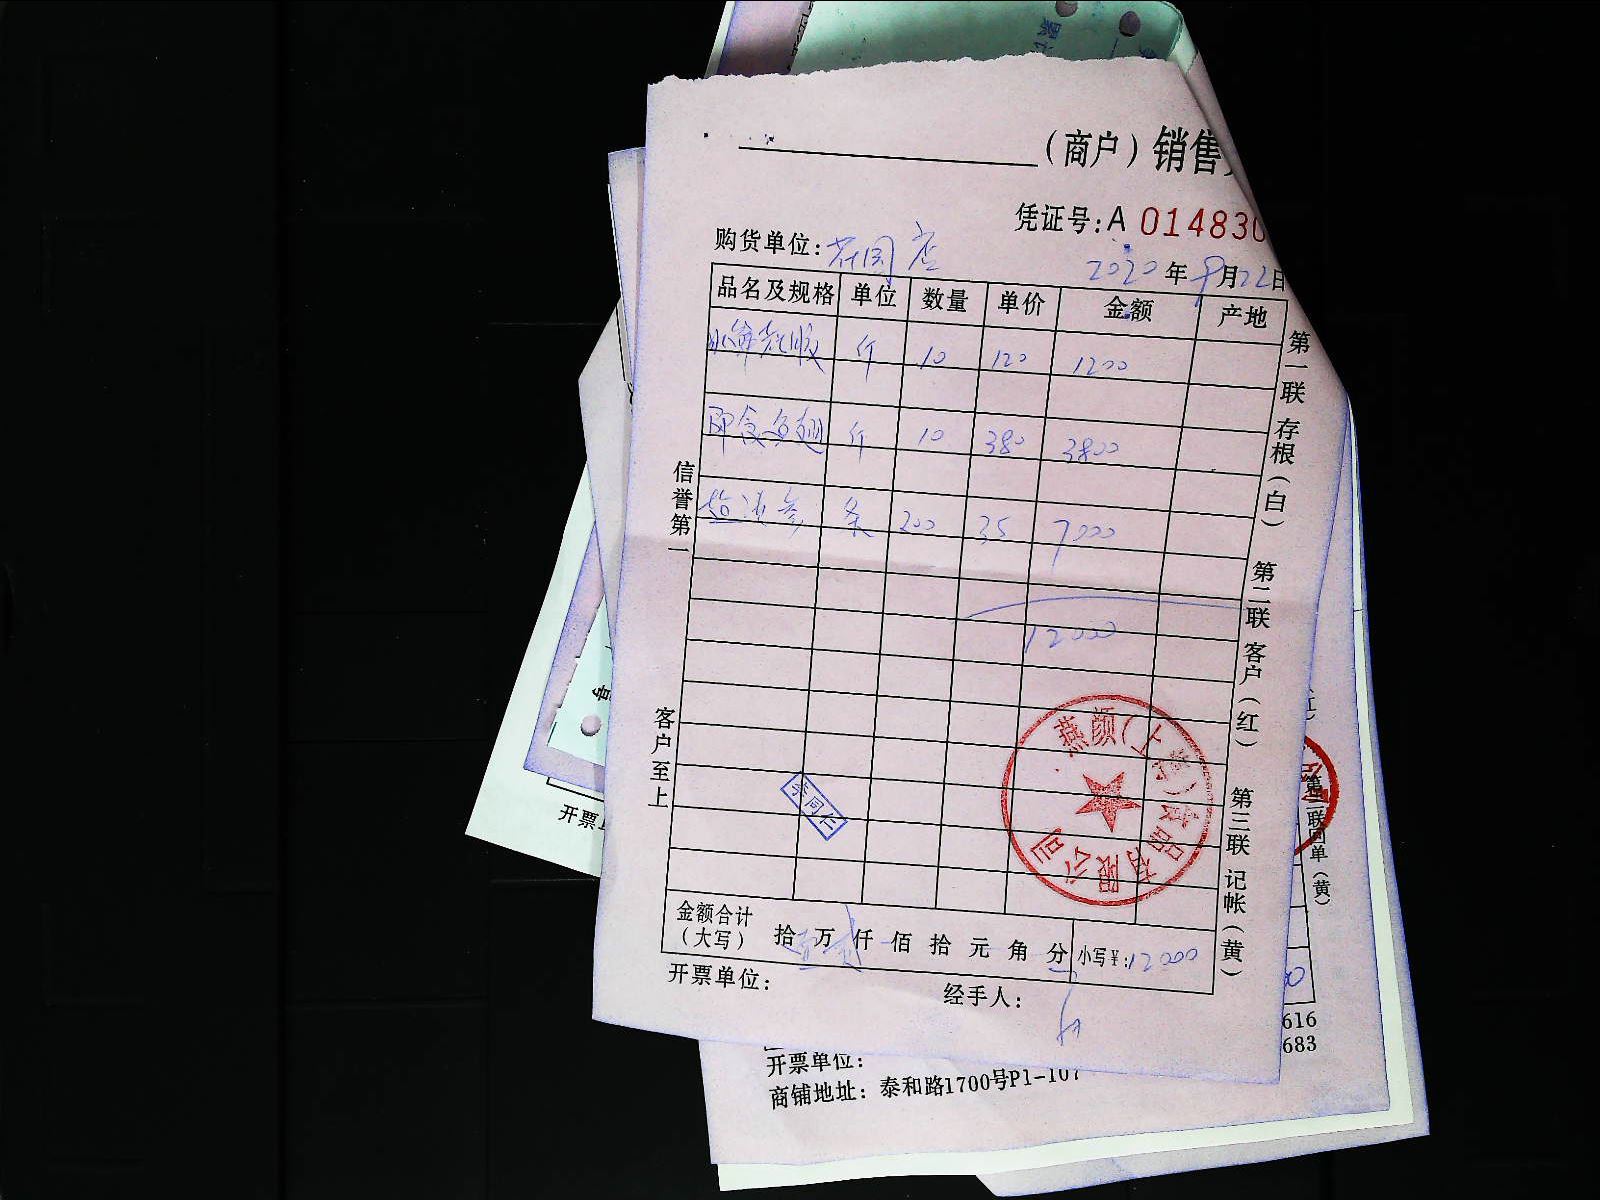 （商户）销售
凭证号：A 014830
购货单位：花园店
2020年9月22日
品名及规格 单位 数量 单价 金额 产地
斤 10 120 1200
即食鱼翅 斤 10 380 3800
盐渍参 条 200 35 7000
12000
李同仁
燕颜（上海）食品有限公司
金额合计（大写） 拾壹万贰仟佰拾元角分 小写￥：12000
开票单位： 经手人：
信誉第一 客户至上
第一联 存根（白） 第二联 客户（红） 第三联 记帐（黄）
第三联回单（黄）
616
683
开票单位：
商铺地址：泰和路1700号P1-107
开票